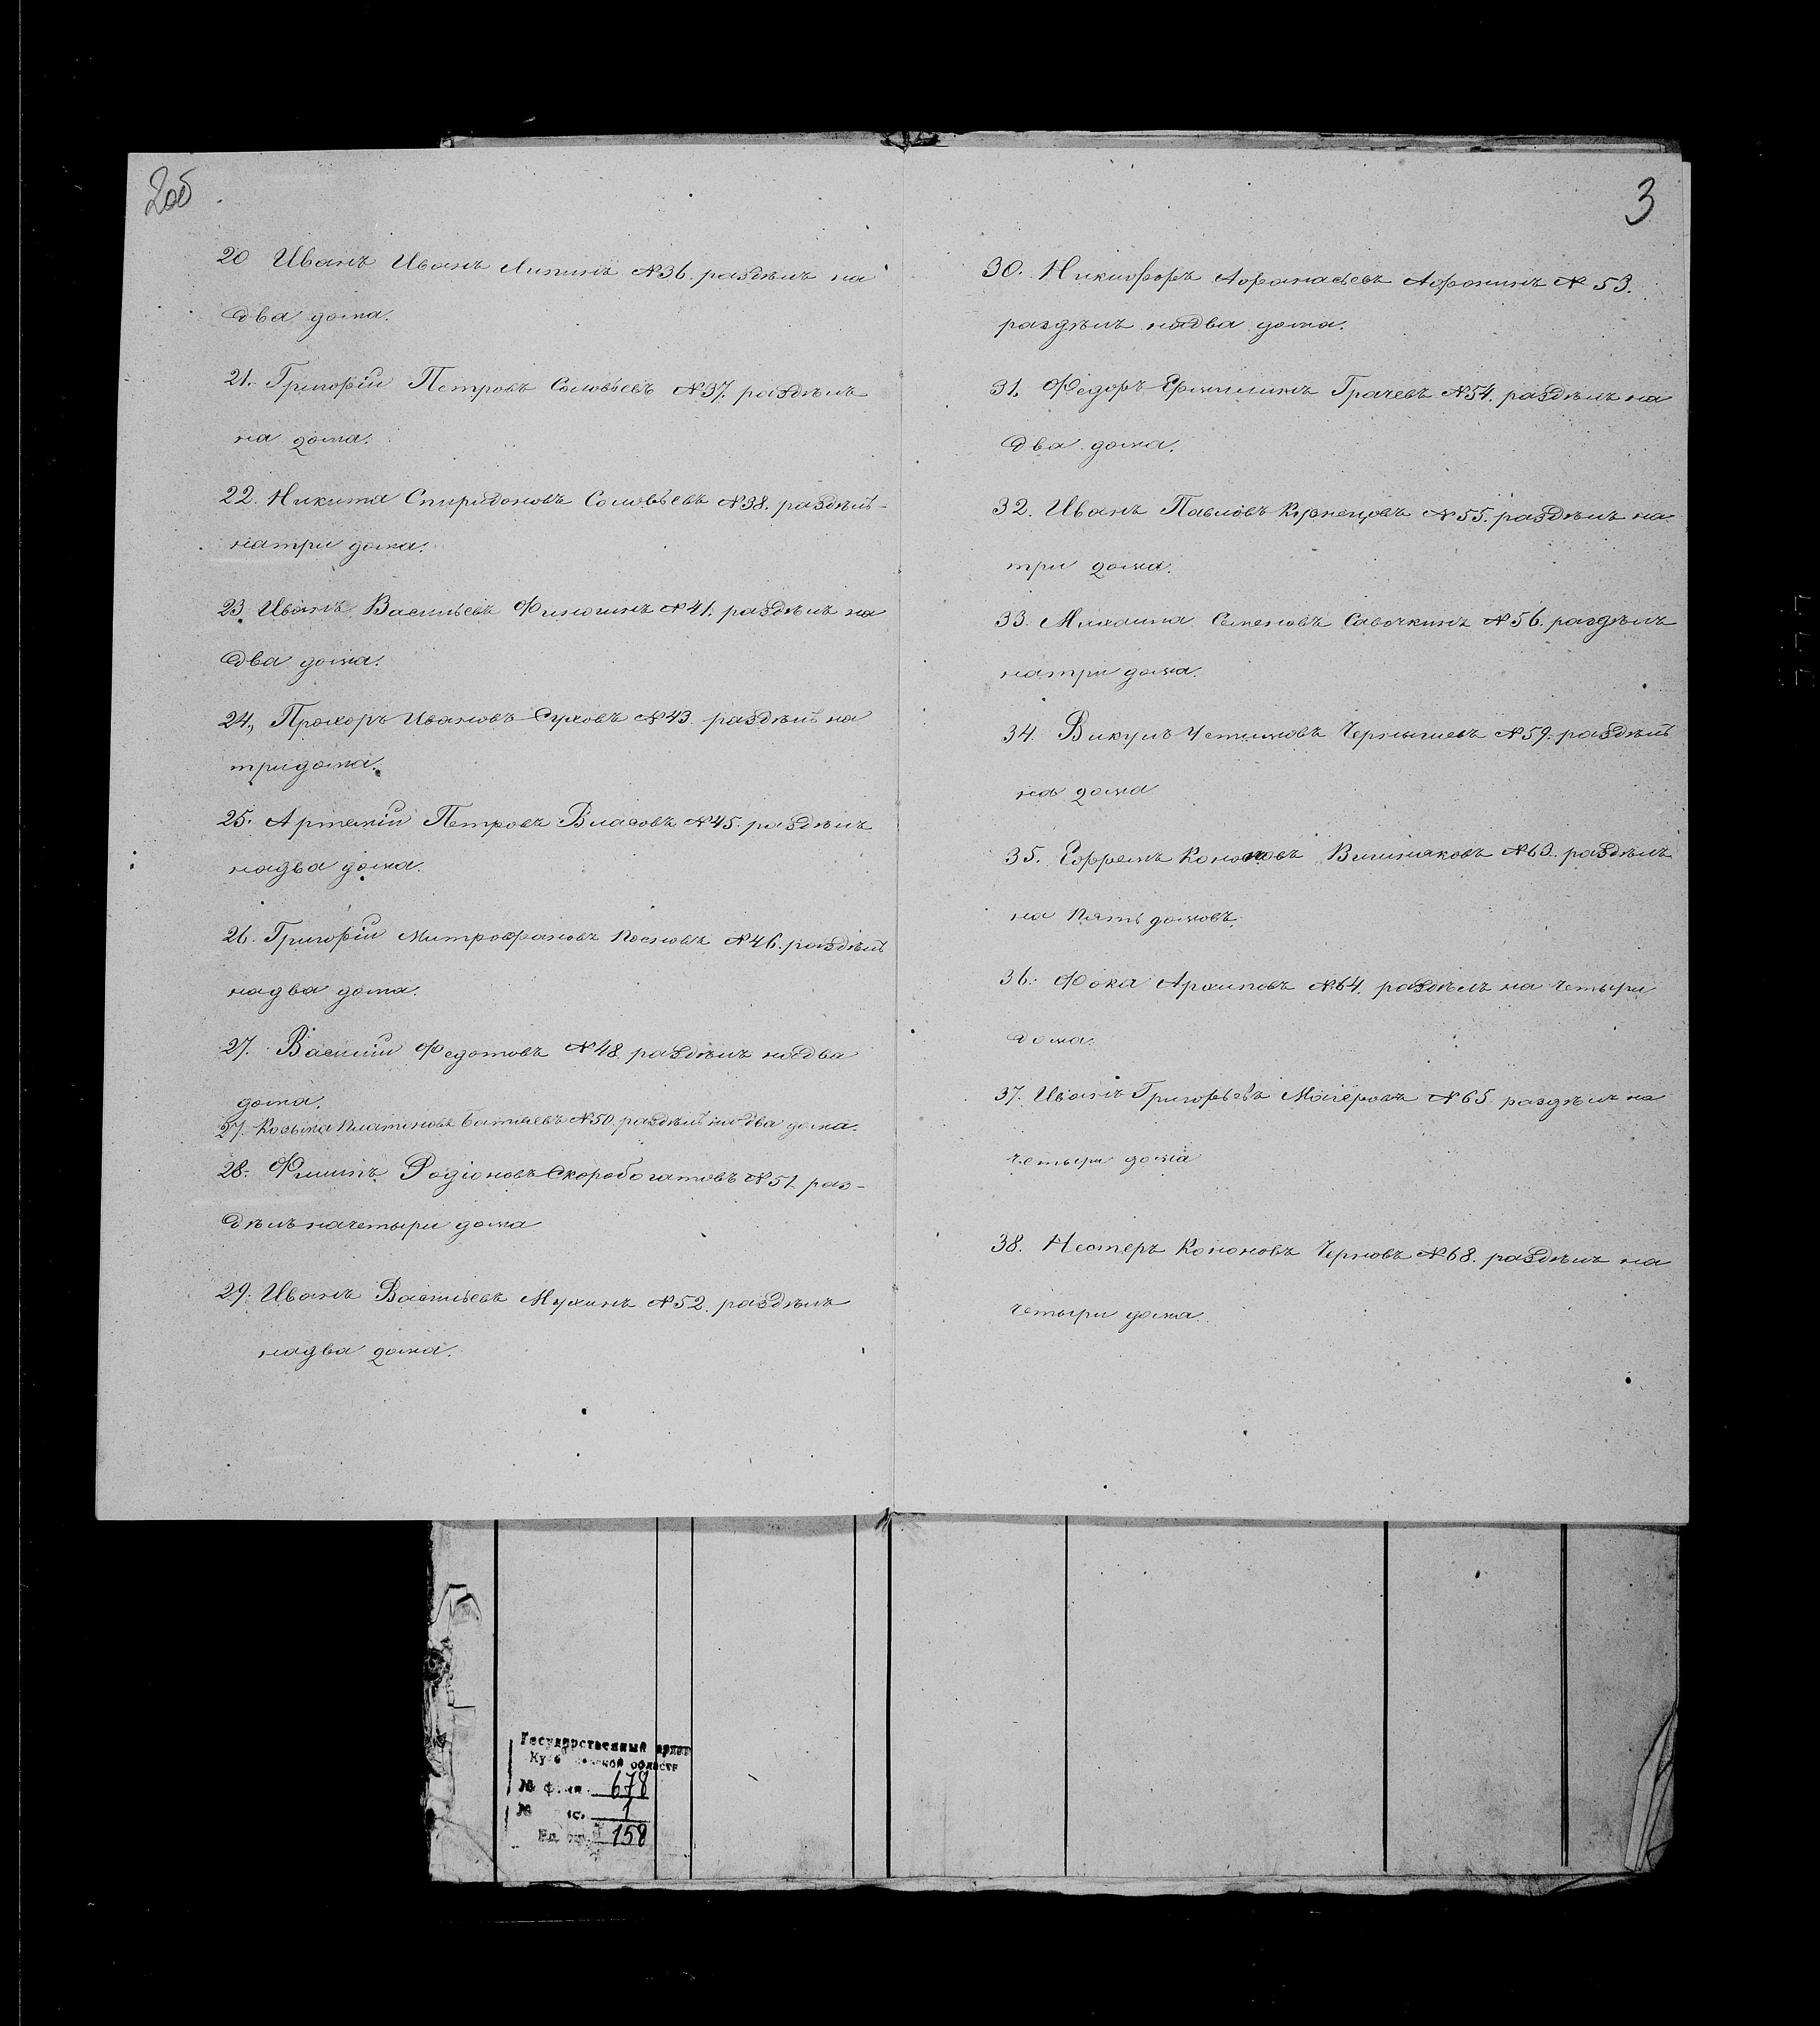 2об
20 Иванъ Иванъ Липинъ №36. раздѣлъ на
два дома.
21. Григорій Петровъ Соловьевъ №37. раздѣлъ
на дома.
22. Никита Спиридоновъ Соловьевъ №38. раздѣлъ
натри дома.
23 Иванъ Васильевъ Финогинъ №41. раздѣлъ на
два дома.
24., Прохоръ Ивановъ Суховъ №43. раздѣлъ на
тридома.
25. Артемій Петровъ Власовъ №45. раздѣлъ
надва дома.
26. Григорій Митрофановъ Посновъ №46. раздѣлъ
надва дома.
27. Василий Федотовъ №48 раздѣлъ надва
дома.
27. Козьма Платоновъ №50. раздѣлъ надва дома.
28. Филипъ Родіоновъ Скоробогатовъ №51. раз-
дѣлъ начетыри дома
29. Иванъ Васильевъ Мухинъ №52. раздѣлъ
надва дома.
3
30. Никифоръ Афанасьевъ Афонинъ №53.
раздѣлъ надва дома.
31. Федоръ Грачевъ №54. раздѣлъ на
два дома.
32. Иванъ Павловъ Кузнецовъ №55. раздѣлъ на
три дома.
33. Михаила Семеновъ Савочкинъ №56. раздѣлъ
натри дома.
34. Викулъ Устиновъ Чернышевъ №59. раздѣлъ
на дома
35. Ефремъ Кононовъ Вишняковъ №63. раздѣлъ
на пять домовъ.
36. Фока Архиповъ №64. раздѣлъ на четыри
дома.
37. Иванъ Григорьевъ Маіёровъ №65. раздѣлъ на
четыри дома
38. Нестеръ Кононовъ Черновъ №68. раздѣлъ на
четыри дома.
Государственный архив
области
№ 678
№ 1
158